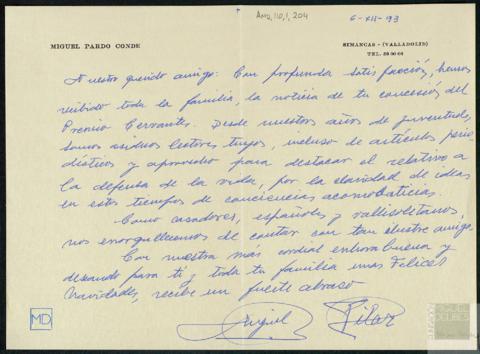 AMD, 110, 1, 204
6-XII-93
MIGUEL PARDO CONDE
SIMANCAS - (VALLADOLID)
TEL. 59 00 64
Nuestro querido amigo: Con profunda satisfacción, hemos
recibido toda la familia, la noticia de tu concesión del
Premio Cervantes. Desde nuestros años de juventud,
somos asiduos lectores tuyos, incluso de artículos perio-
dísticos y aprovecho para destacar el relativo a
la defensa de la vida, por la claridad de ideas
en estos tiempos de conciencias acomodaticias.
Como cazadores, españoles y vallisoletanos,
nos enorgullecemos de contar con tan ilustre amigo.
Con nuestra más cordial enhorabuena y
deseando para tí y toda tu familia unas Felices
Navidades, recibe un fuerte abrazo
Miguel Pilar
MD
FUNDACIÓN MIGUEL DELIBES